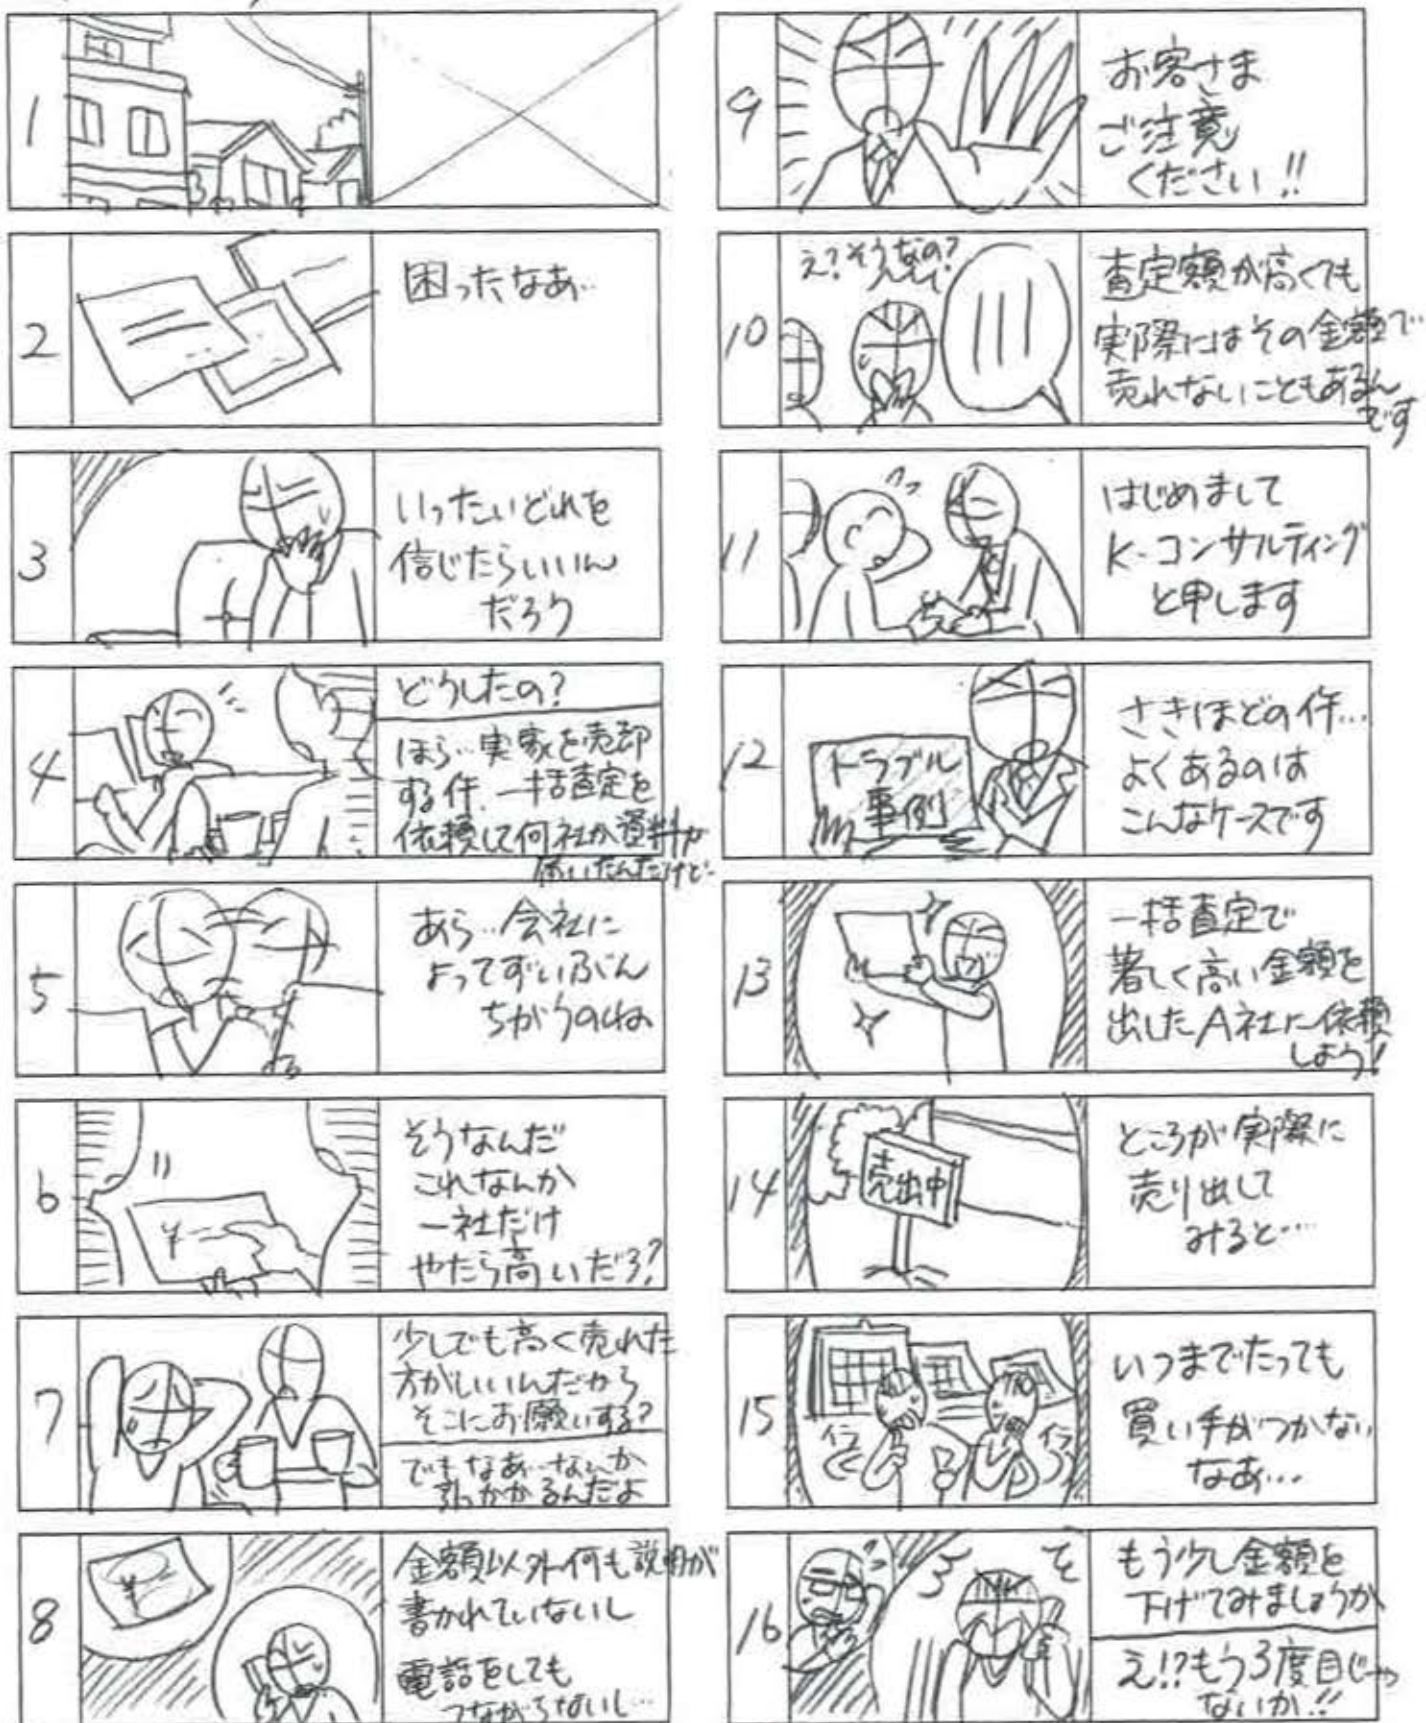 1
2
困ったなあ…
3
いったいどれを
信じたらいいん
だろう
4
どうしたの?
ほら…実家を売却
する件、一括査定を
依頼して何社か資料が
届いたんだけど…
5
あら…会社に
よってずいぶん
ちがうのね
6
¥
そうなんだ
これなんか
一社だけ
やたら高いだろ?
7
少しでも高く売れた
方がいいんだから
そこにお願いする?
でもなあ…なんか
引っかかるんだよ
8
¥
金額以外何も説明が
書かれていないし
電話をしても
つながらないし…
9
お客さま
ご注意
ください!!
10
え?そうなの?
査定額が高くても
実際にはその金額で
売れないこともあるん
です
11
はじめまして
K-コンサルティング
と申します
12
トラブル
事例
さきほどの件…
よくあるのは
こんなケースです
13
一括査定で
著しく高い金額を
出したA社に依頼
しよう!
14
売出中
ところが実際に
売り出して
みると…
15
イラ
イラ
いつまでたっても
買い手がつかない
なあ…
16
もう少し金額を
下げてみましょうか
え!?もう3度目じゃ
ないか!!